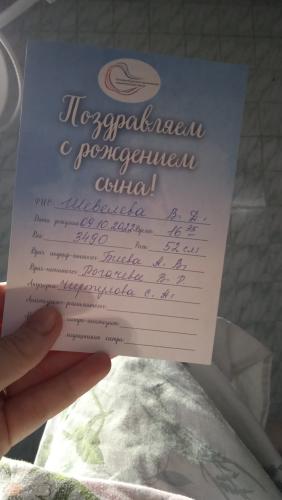 Поздравляем
с рождением
сына!
ФИО Шевелева В. Д.
Дата рождения 09.10.2022 Время 16 35
Вес 3490 Рост 52 см
Врач акушер-гинеколог Гиева А. В.
Врач-неонатолог Рогачева В. Р.
Акушерка С. А.
Анестезиолог-реаниматолог
медицинская сестра